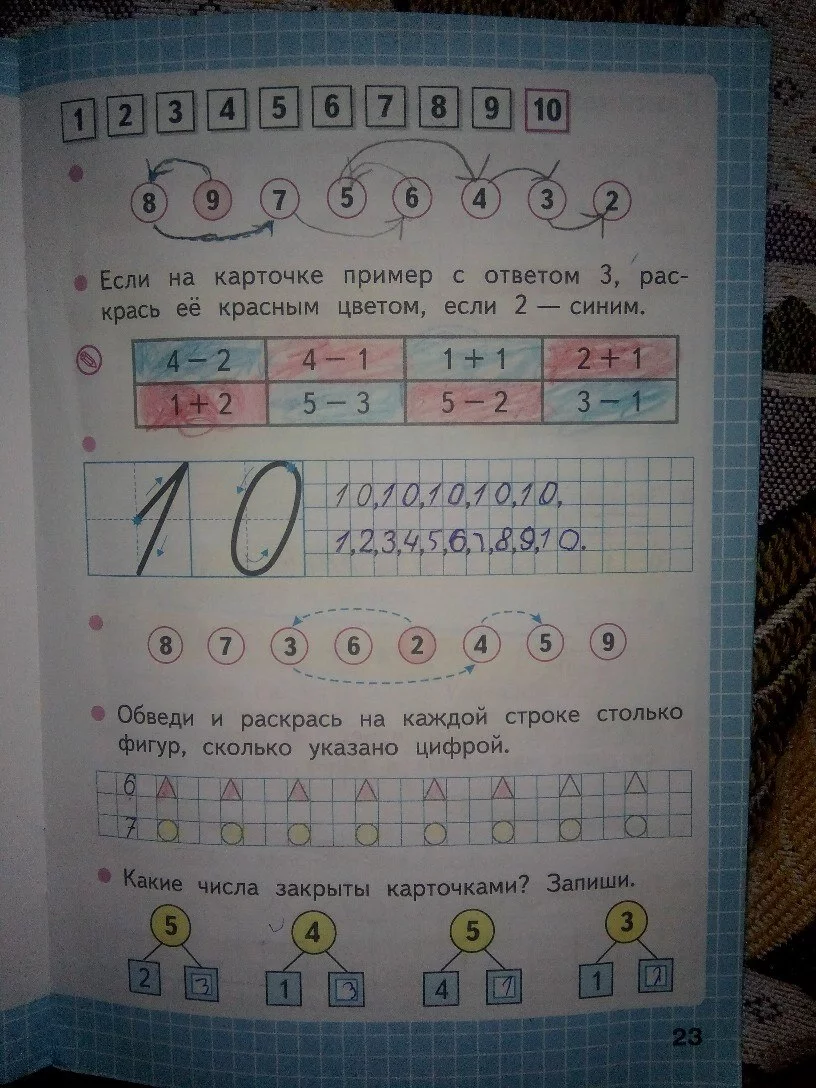 1 2 3 4 5 6 7 8 9 10
8 9 7 5 6 4 3 2
Если на карточке пример с ответом 3, рас-
крась её красным цветом, если 2 — синим.
4 − 2 4 − 1 1 + 1 2 + 1
1 + 2 5 − 3 5 − 2 3 − 1
10 10,10,10,10,10,
1,2,3,4,5,6,7,8,9,10.
8 7 3 6 2 4 5 9
Обведи и раскрась на каждой строке столько
фигур, сколько указано цифрой.
6
7
Какие числа закрыты карточками? Запиши.
5 4 5 3
2 3 1 3 4 1 1
23